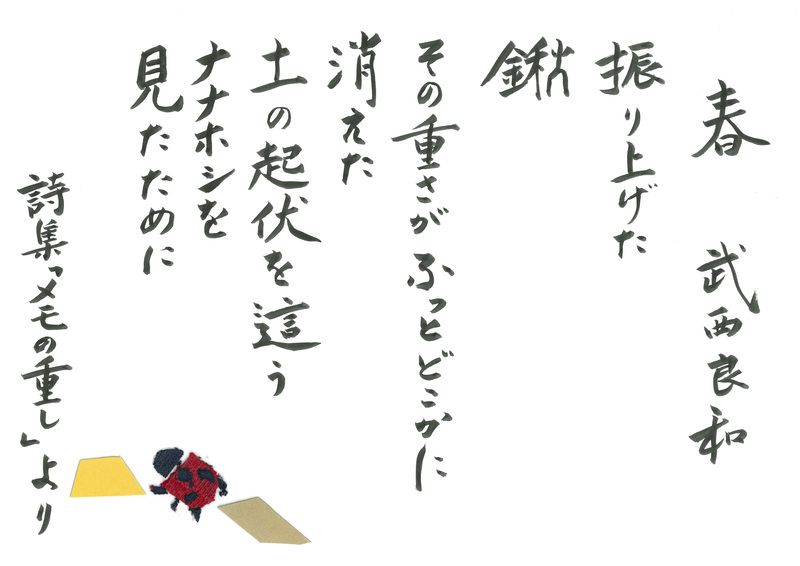 春　武西良和
振り上げた
鍬
その重さが ふっとどこかに
消えた
土の起伏を這う
ナナホシを
見たために
詩集「メモの重し」より